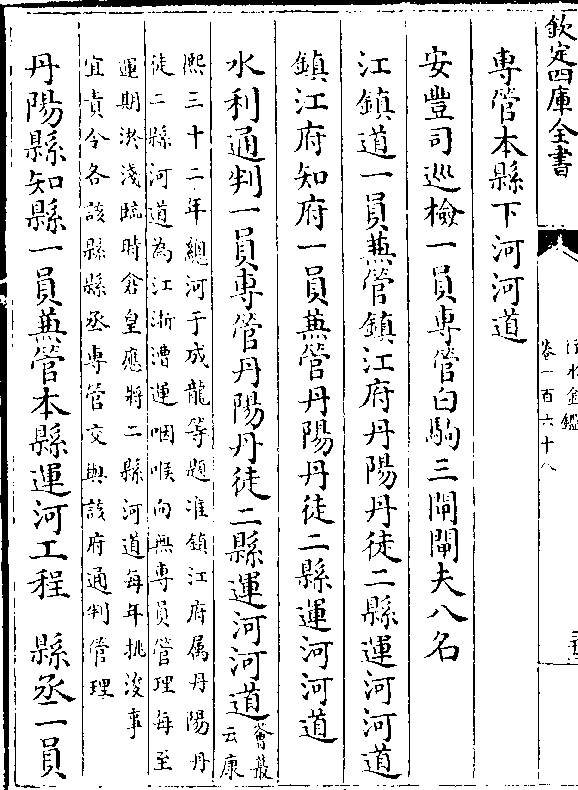 欽定四庫全書
行水金鑑
卷一百六十八
專管本縣下河河道
安豐司巡檢一員專管白駒三閘閘夫八名
江鎮道一員兼管鎮江府丹陽丹徒二縣運河河道
鎮江府知府一員兼管丹陽丹徒二縣運河河道
水利通判一員專管丹陽丹徒二縣運河河道
薈蕞
云康
熙三十二年總河于成龍等題准鎮江府属丹陽丹
徒二縣河道為江浙漕運咽喉向無專員管理每至
運期淤淺臨時倉皇應將二縣河道每年挑浚事
宜責令各該縣縣丞專管交與該府通判管理
丹陽縣知縣一員兼管本縣運河工程 縣丞一員